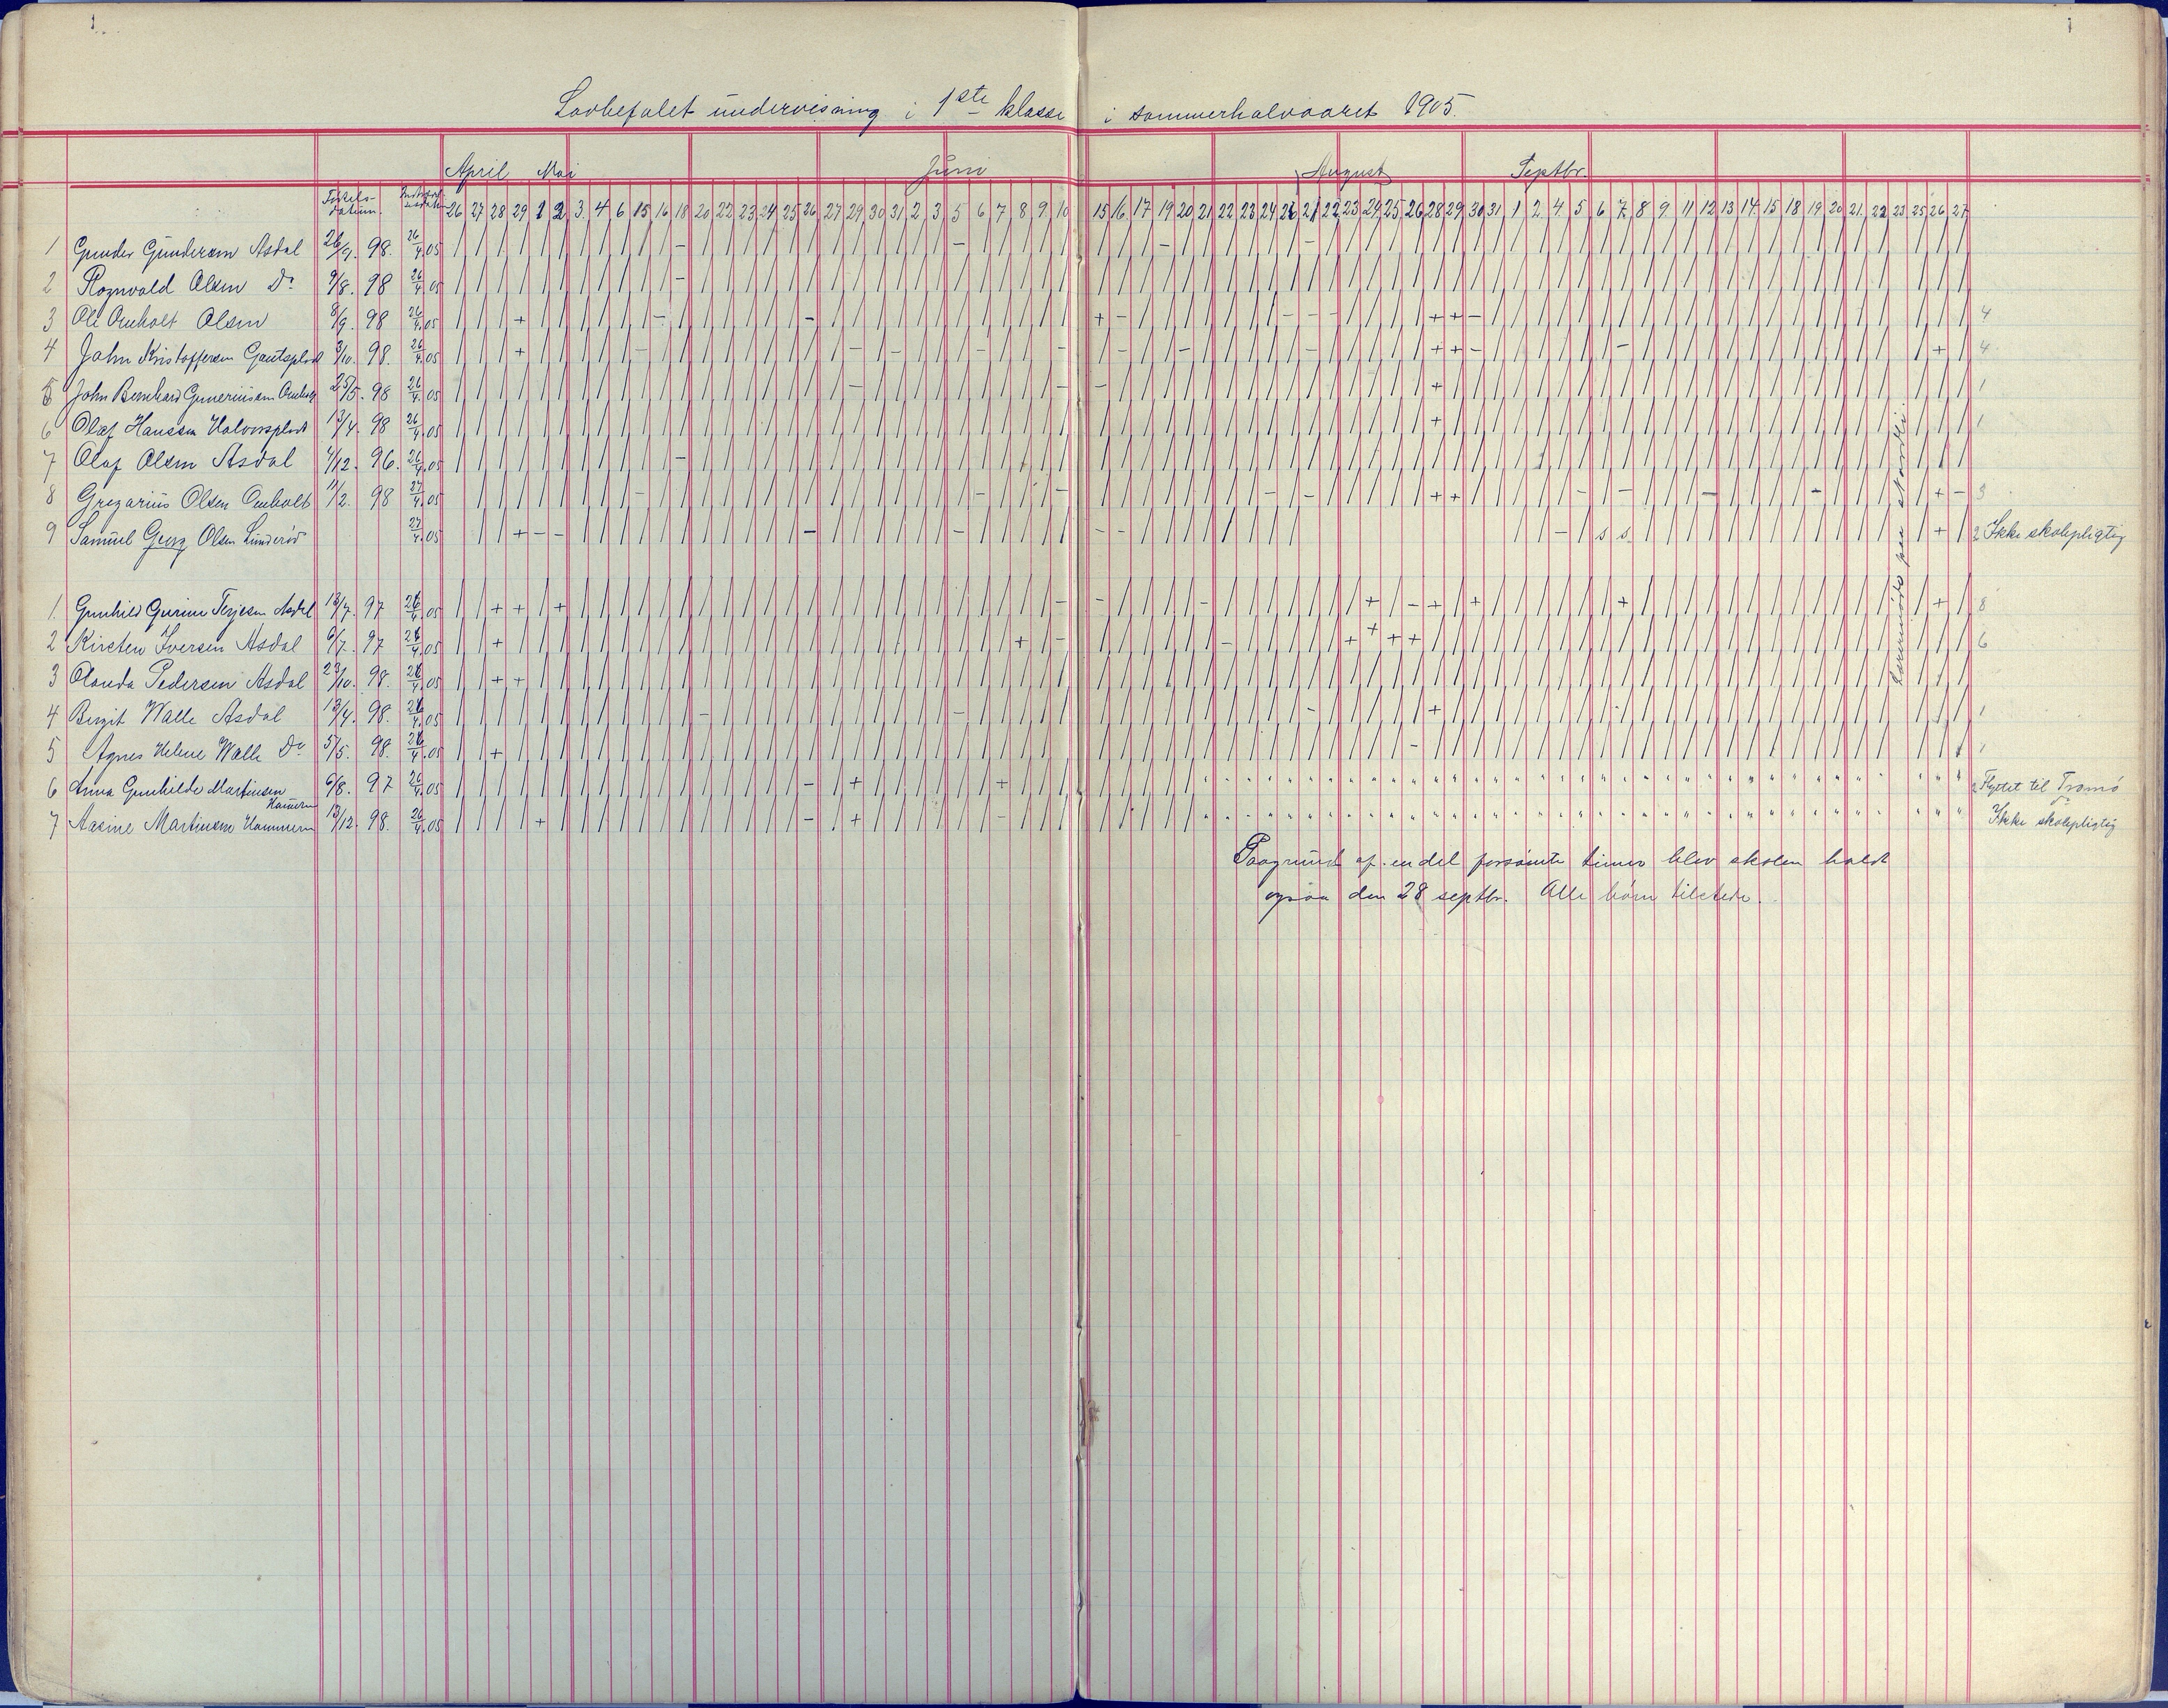 1 1
Lovbefalet undervisning i 1ste klasse i sommerhalvaaret 1905.
April Mai Juni August Septbr.
Fødsels-
datum.
26 27 28 29 1 2 3 4 6 15 16 18 20 22 23 24 25 26 27 29 30 31 2 3 5 6 7 8 9 10 15 16 17 19 20 21 22 23 24 26 21 22 23 24 25 26 28 29 30 31 1 2 4 5 6 7 8 9 11 12 13 14 15 18 19 20 21 22 23 25 26 27
1 Gunder Gundersen Asdal 26/9. 98. 26/4.05 / / / / / / / / / / / - / / / / / / / / / / / / - / / / / / / / / - / / / / / / - / / / / / / / / / / / / / / / / / / / / / / / / / / / / / / /
2 Rognvald Olsen Do 9/8. 98 26/4.05
3 Ole Omholt Olsen 8/9. 98 26/4.05 + - - + - - - - + + - 4
4 John Kristoffersen Gautsplads 3/10. 98. 26/4.05 + - - - - - - - - + + - - + 4
5 John Bernhard Guneriussen Omholt 25/5. 98 26/4.05 - - - + 1
6 Olaf Hanssen Halvorsplads 13/4. 98 26/4.05 + 1
7 Olaf Olsen Asdal 4/12. 96. 26/4.05 -
8 Gregarius Olsen Omholt 11/2. 98 27/4.05 - - - - - + + - - - - + - 3
9 Samuel Georg Olsen Lunderød 27/4.05 + - - - - - - - s s + 2 Ikke skolepligtig
Lærermøde paa
1. Gunhild Gurine Terjesen Asdal 13/7. 97 26/4.05 + + + - - - + - + + + + 8
2 Kirsten Iversen Asdal 6/7. 97 26/4.05 + + - - + + + + 6
3 Olanda Pedersen Asdal 23/10. 98. 26/4.05 + +
4 Bergit Walle Asdal 13/4. 98. 26/4.05 - - - + 1
5 Agnes Helene Walle Do 5/5. 98. 26/4.05 + - 1
6 Anna Gunhilde Martinsen
Hammern 6/8. 97 26/4.05 - + + 2 Flyttet til Tromø
7 Aasine Martinsen Hammern 13/12. 98. 26/4.05 + - + - do
Ikke skolepligtig
Paagrund af en del forsømte timer blev skolen holdt
ogsaa den 28 septbr. Alle børn tilstede.